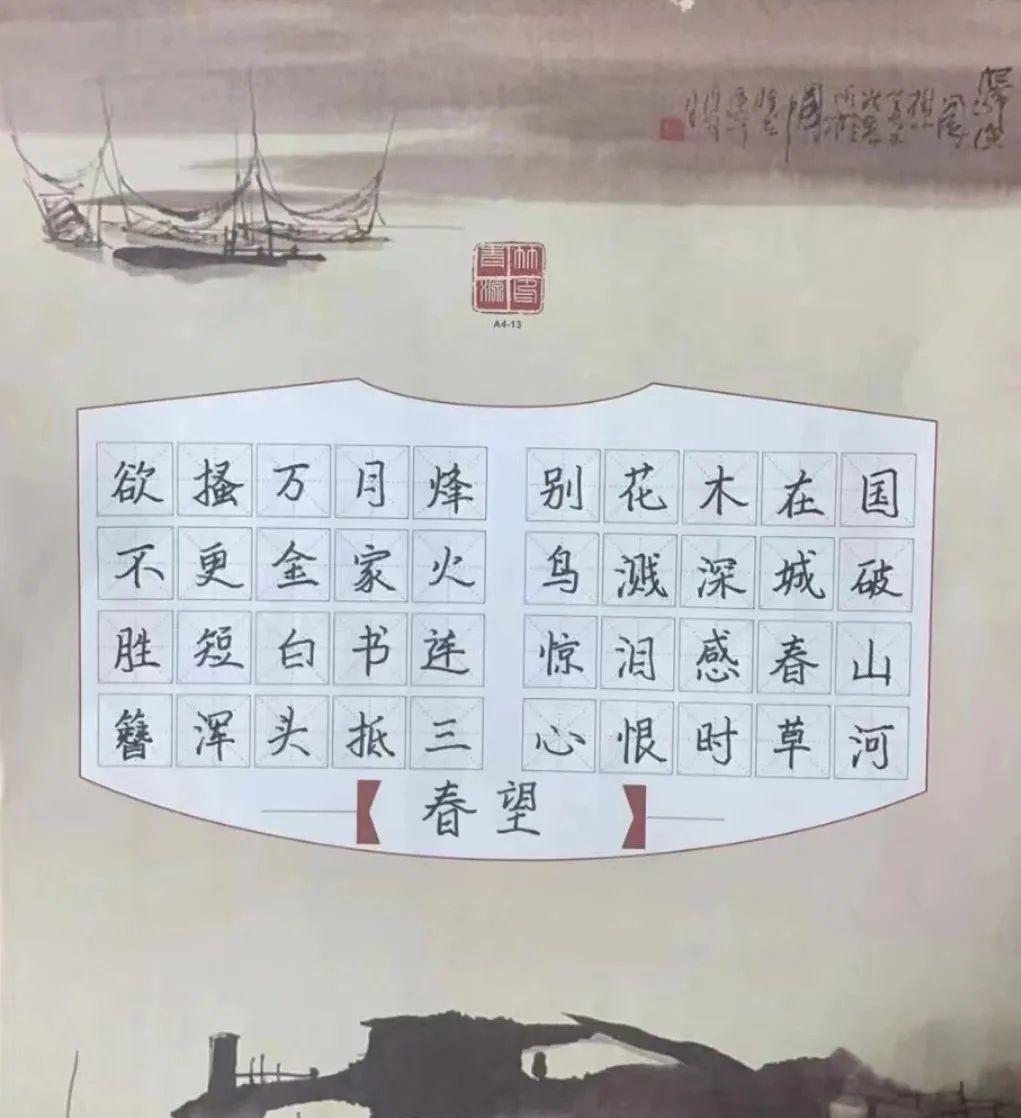 A4-13
国破山河
在城春草
木深感时
花溅泪恨
别鸟惊心
烽火连三
月家书抵
万金白头
搔更短浑
欲不胜簪
春望